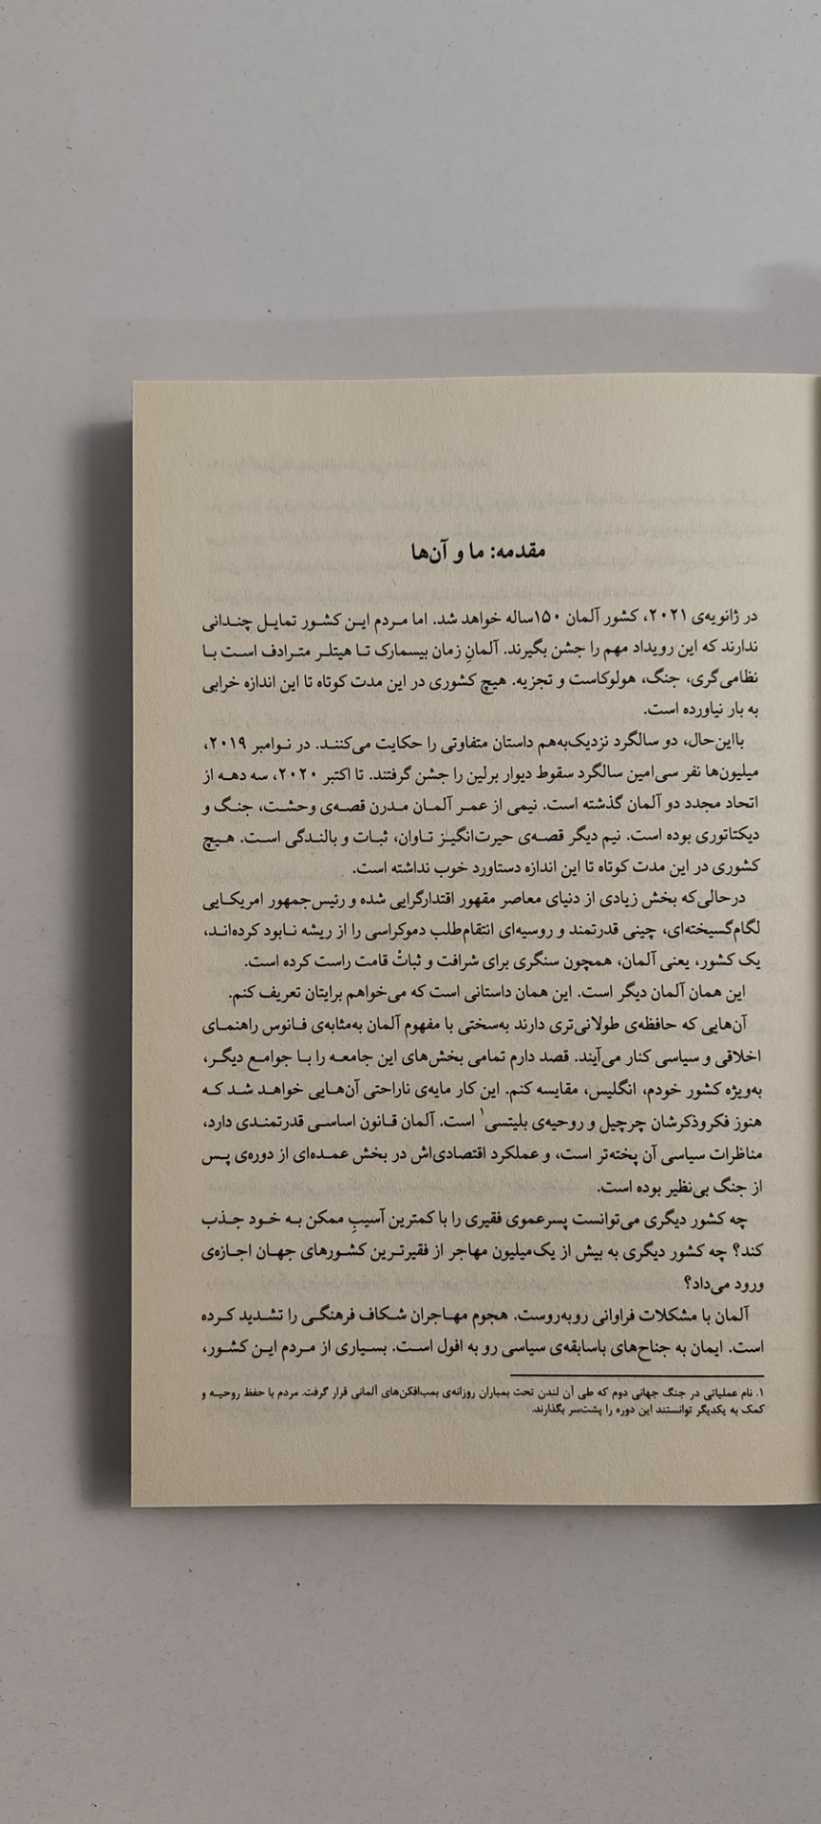 مقدمه: ما و آن‌ها
در ژانویه‌ی ۲۰۲۱، کشور آلمان ۱۵۰ساله خواهد شد. اما مردم این کشور تمایل چندانی
ندارند که این رویداد مهم را جشن بگیرند. آلمانِ زمان بیسمارک تا هیتلر مترادف است با
نظامی‌گری، جنگ، هولوکاست و تجزیه. هیچ کشوری در این مدت کوتاه تا این اندازه خرابی
به بار نیاورده است.
بااین‌حال، دو سالگرد نزدیک‌به‌هم داستان متفاوتی را حکایت می‌کنند. در نوامبر ۲۰۱۹،
میلیون‌ها نفر سی‌امین سالگرد سقوط دیوار برلین را جشن گرفتند. تا اکتبر ۲۰۲۰، سه دهه از
اتحاد مجدد دو آلمان گذشته است. نیمی از عمر آلمان مدرن قصه‌ی وحشت، جنگ و
دیکتاتوری بوده است. نیم دیگر قصه‌ی حیرت‌انگیز تاوان، ثبات و بالندگی است. هیچ
کشوری در این مدت کوتاه تا این اندازه دستاورد خوب نداشته است.
درحالی‌که بخش زیادی از دنیای معاصر مقهور اقتدارگرایی شده و رئیس‌جمهور امریکایی
لگام‌گسیخته‌ای، چینی قدرتمند و روسیه‌ای انتقام‌طلب دموکراسی را از ریشه نابود کرده‌اند،
یک کشور، یعنی آلمان، همچون سنگری برای شرافت و ثباتْ قامت راست کرده است.
این همان آلمان دیگر است. این همان داستانی است که می‌خواهم برایتان تعریف کنم.
آن‌هایی که حافظه‌ی طولانی‌تری دارند به‌سختی با مفهوم آلمان به‌مثابه‌ی فانوس راهنمای
اخلاقی و سیاسی کنار می‌آیند. قصد دارم تمامی بخش‌های این جامعه را با جوامع دیگر،
به‌ویژه کشور خودم، انگلیس، مقایسه کنم. این کار مایه‌ی ناراحتی آن‌هایی خواهد شد که
هنوز فکروذکرشان چرچیل و روحیه‌ی بلیتسی۱ است. آلمان قانون اساسی قدرتمندی دارد،
مناظرات سیاسی آن پخته‌تر است، و عملکرد اقتصادی‌اش در بخش عمده‌ای از دوره‌ی پس
از جنگ بی‌نظیر بوده است.
چه کشور دیگری می‌توانست پسرعموی فقیری را با کمترین آسیبِ ممکن به خود جذب
کند؟ چه کشور دیگری به بیش از یک‌میلیون مهاجر از فقیرترین کشورهای جهان اجازه‌ی
ورود می‌داد؟
آلمان با مشکلات فراوانی روبه‌روست. هجوم مهاجران شکاف فرهنگی را تشدید کرده
است. ایمان به جناح‌های باسابقه‌ی سیاسی رو به افول است. بسیاری از مردم این کشور،
۱. نام عملیاتی در جنگ جهانی دوم که طی آن لندن تحت بمباران روزانه‌ی بمب‌افکن‌های آلمانی قرار گرفت. مردم با حفظ روحیه و
کمک به یکدیگر توانستند این دوره را پشت‌سر بگذارند.